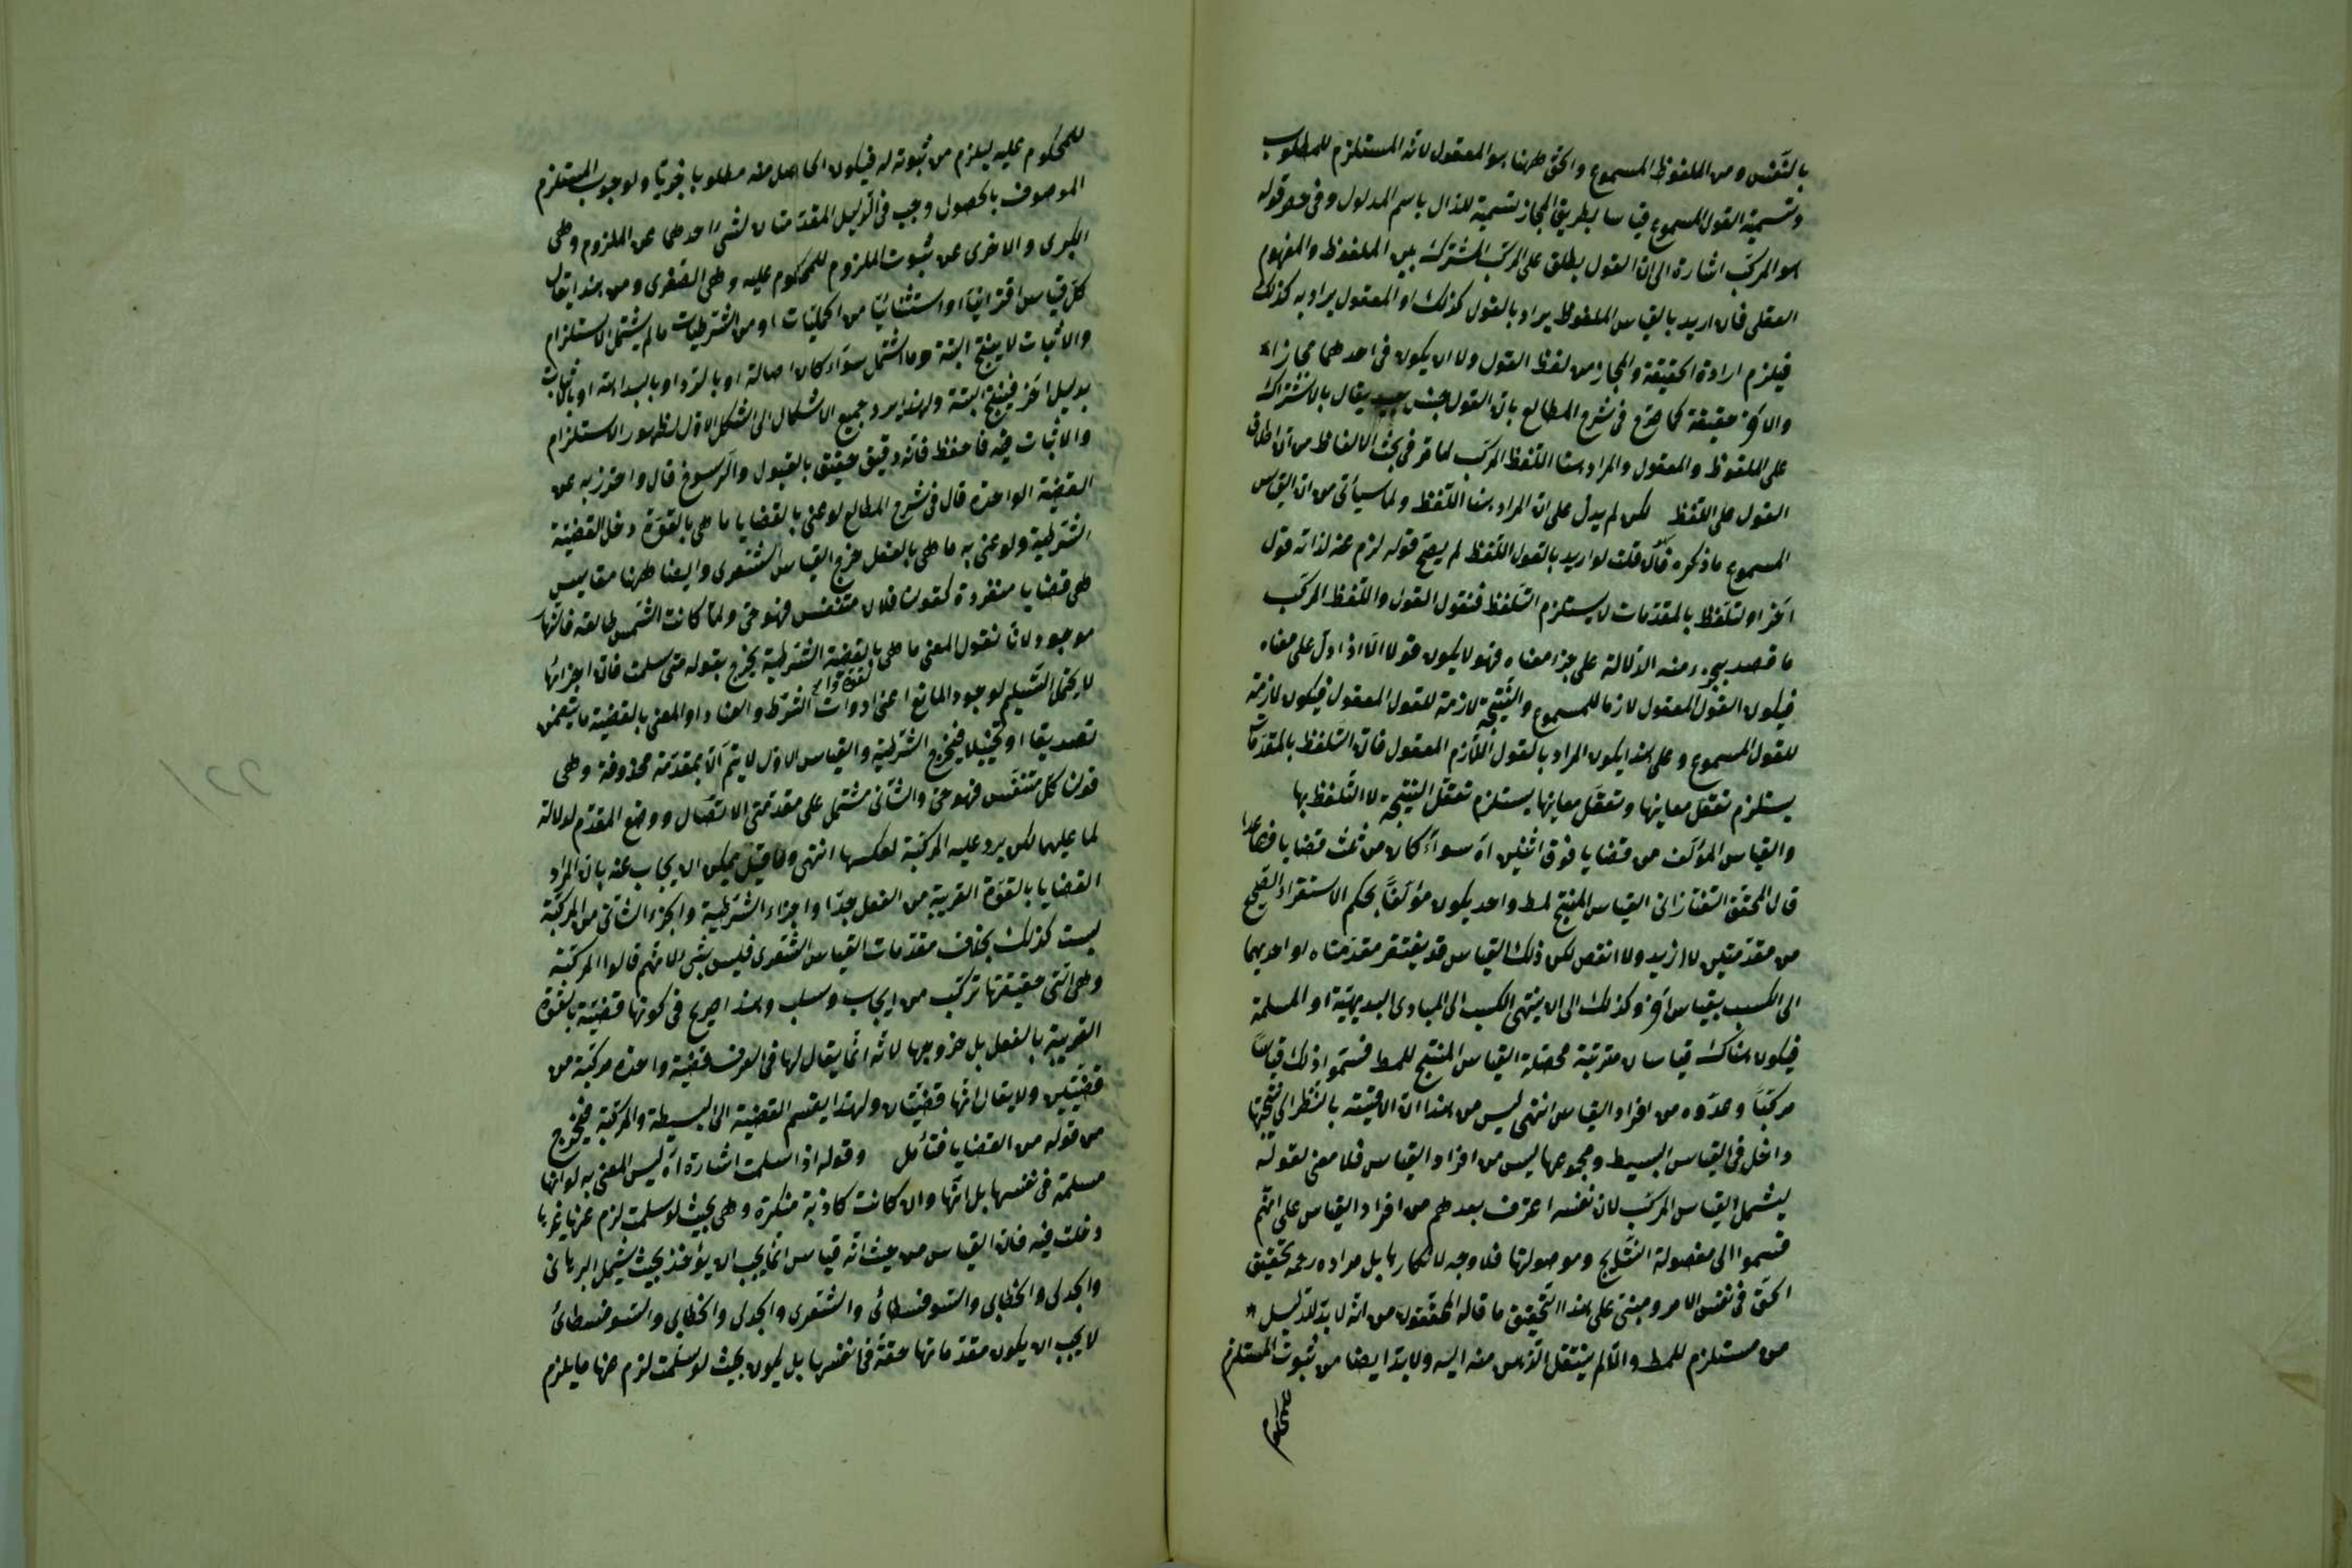 بالنفس ومن الملفوظ المسموع والحق ههنا هو المعقول لانه المستلزم للمطلوب
وتسمية القول المسموع قياسا بطريق المجاز تسمية للدال باسم المدلول وفي قوله
هو المركب اشارة الى ان القول يطلق على المركب المشترك بين الملفوظ والمفهوم
العقلى فان اريد بالقياس الملفوظ يراد بالقول كذلك او المعقول يراد به كذلك
فيلزم ارادة الحقيقة والمجاز من لفظ القول ولا ان يكون فى احدهما مجازا
والاخر حقيقة كما صرح فى شرح المطالع بان القول جنس يقال بالاشتراك
على الملفوظ والمعقول والمراد هنا اللفظ المركب لما مر فى بحث الالفاظ من ان اطلاق
القول على اللفظ لكن لم يدل على ان المراد هنا اللفظ ولما سيأتى من ان القياس
المسموع ما ذكره فان قلت لو اريد بالقول اللفظ لم يصح قوله لزم عنه لذاته قول
آخر اذ تلفظ بالمقدمات لا يستلزم التلفظ فنقول القول واللفظ المركب
ما قصد بجزء منه الدلالة على جزء معناه فهو لا يكون قولا الا اذا دل على معناه
فيكون القول المعقول لازما للمسموع والنتيجة لازمة للقول المعقول فيكون لازمة
للقول المسموع وعلى هذا يكون المراد بالقول اللازم المعقول فان التلفظ بالمقدمات
يستلزم تعقل معانيها وتعقل معانيها يستلزم تعقل النتيجة لا التلفظ بها
والقياس المؤلف من قضايا فوق اثنين اه سواء كان من ثلث قضايا فصاعدا
قال المحقق التفتازانى القياس المنتج لمط واحد يكون مؤلفا بحكم الاستقراء الصحيح
من مقدمتين لا ازيد ولا انقص لكن ذلك القياس قد يفتقر مقدمتاه او احديهما
الى الكسب بقياس آخر وكذلك الى ان ينتهى الكسب الى المبادى البديهية او المسلمة
فيكون هناك قياسات مترتبة محصلة القياس المنتج للمط فسموا ذلك قياسا
مركبا وعدوه من افراد القياس انتهى ليس من هذا ان الحقيقة بالنظر الى نتيجتها
داخل فى القياس البسيط ومجموعها ليس من افراد القياس فلا معنى لقوله
يشمل القياس المركب لان نفسه اعترف بعدهم من افراد القياس على انهم
قسموا الى مفصولة النتايج وموصولتها فلا وجه لانكارها بل مراده رحمه تحقيق
الحق فى نفس الامر ومبنى على هذا التحقيق ما قاله المحققون من انه لا بد للدليل
من مستلزم للمط والا لم ينتقل الذهن منه اليه ولا بد ايضا من ثبوت المستلزم
للمحكوم
للمحكوم عليه ليلزم من ثبوته له فيكون الحاصل منه مطلوبا خبريا ولوجوب المستلزم
الموصوف بالحصول وجب فى الدليل المقدمتان لتنبئ احدهما عن الملزوم وهى
الكبرى والاخرى عن ثبوت الملزوم للمحكوم عليه وهى الصغرى ومن هنا يقال
كل قياس اقترانيا او استثنائيا من الحمليات او من الشرطيات ما لم يشتمل الاستلزام
والاثبات لا ينتج البتة وما اشتمل سواء كان اصالة او بالرد او بالبداهة او باثبات
بدليل آخر فينتج البتة ولهذا يرد جميع الاشكال الى الشكل الاول لظهور الاستلزام
والاثبات فيه فاحفظ فانه دقيق حقيق بالقبول والرسوخ قال واحترز به عن
القضية الواحدة قال فى شرح المطالع لو عنى بالقضايا ما هى بالقوة دخل القضية
الشرطية ولو عنى به ما هى بالفعل خرج القياس الشعرى وايضا ههنا مقاييس
هى قضايا منفردة كقولنا فلان متنفس فهو حى ولما كانت الشمس طالعة فالنهار
موجود لانا نقول المعنى ما هى بالقضية الشرطية يخرج بقوله متى سلمت فان اجزائها
لا يحتمل التسليم لوجود المانع اعنى ادوات الشرط والعناد او المعنى بالقضية ما يتضمن
تصديقا او تخييلا فيخرج الشرطية والقياس الاول لا يتم الا بمقدمة محذوفة وهى
قولنا كل متنفس فهو حى والثانى مشتمل على مقدمتى الاتصال ووضع المقدم لدلالة
لما عليهما لكن يرد عليه المركبة لعكسها انتهى يمكن ان يجاب عنه بان المراد
القضايا بالقوة القريبة من الفعل جدا واجزاء الشرطية والجزء الثانى من المركبة
ليست كذلك بخلاف مقدمات القياس الشعرى فليس بشئ لانهم قالوا المركبة
وهى التى حقيقتها تركب من ايجاب وسلب وهذا صريح فى كونها قضية بالقوة
القريبة بالفعل بل خروجها لانه انما يقال لها فى العرف قضية واحدة مركبة من
قضيتين ولا يقال انها قضيتان ولهذا يقسم القضية الى البسيطة والمركبة فيخرج
من قوله من القضايا فتأمل وقوله اذا سلمت اشارة انه ليس المعنى به انها
مسلمة فى نفسها بل انها وان كانت كاذبة منكرة وهى بحيث لو سلمت لزم عنها غيرها
دخلت فيه فان القياس من حيث انه قياس انما يجب ان يؤخذ بحيث يشمل البرهانى
والجدلى والخطابى والسوفسطائى والشعرى والجدلى والخطابى والسوفسطائى
لا يجب ان يكون مقدماتها حقة فى انفسها بل يكون بحيث لو سلمت لزم عنها ما يلزم